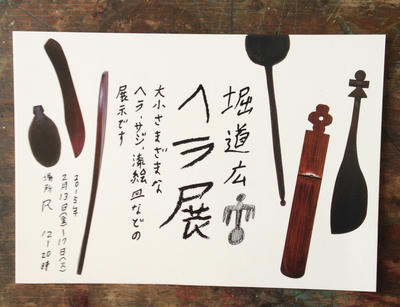 堀道広
ヘラ展
大小さまざまな
ヘラ、サジ、漆絵皿などの
展示です
2015年
2月13日(金)-17日(火)
場所 尺 12-20時